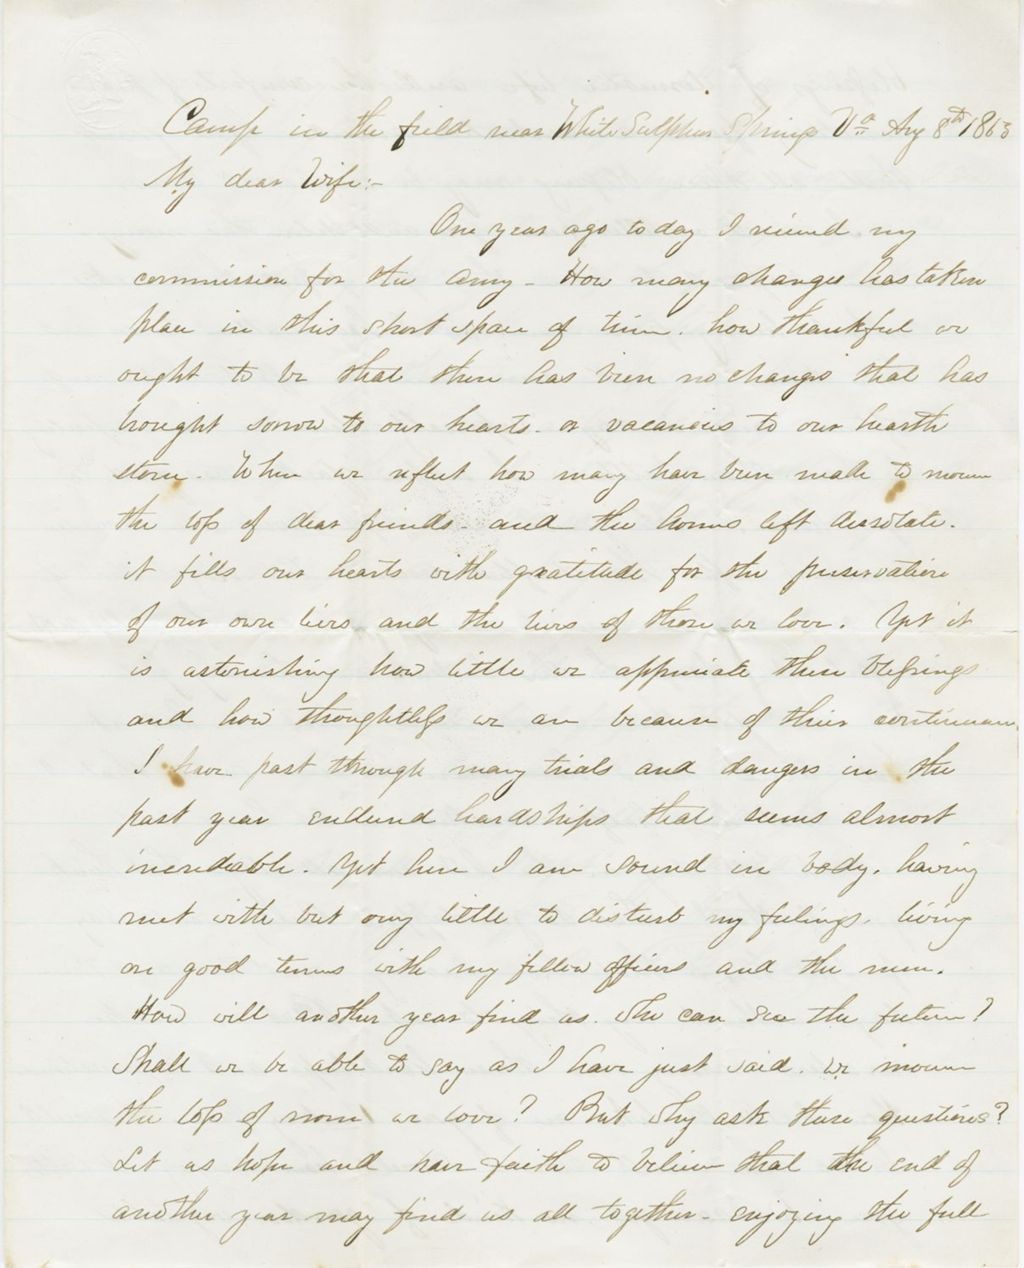 Camp in the field near White Sulphur Springs Va Aug 8th 1863
My dear Wife:-
One year ago to day I received my
commission for the army - How many changes has taken
place in this short space of time. how thankful we
ought to be that there has been no changes that has
brought sorrow to our hearts. or vacancies to our hearth
stone. When we reflect how many have been made to mourn
the loss of dear friends. and the homes left desolate.
it fills our hearts with gratitude for the preservation
of our own lives and the lives of those we love. Yet it
is astonishing how little we appreciate these blessings
and how thoughtless we are because of their continuance.
I have past through many trials and dangers in the
past year endured hardships that seems almost
incredable. Yet here I am sound in body. having
met with but very little to disturb my feelings. living
on good terms with my fellow officers and the men.
How will another year find us. Who can see the future?
Shall we be able to say as I have just said. we mourn
the loss of none we love? But why ask these questions?
Let us hope and have faith to believe that the end of
another year may find us all together - enjoying the full